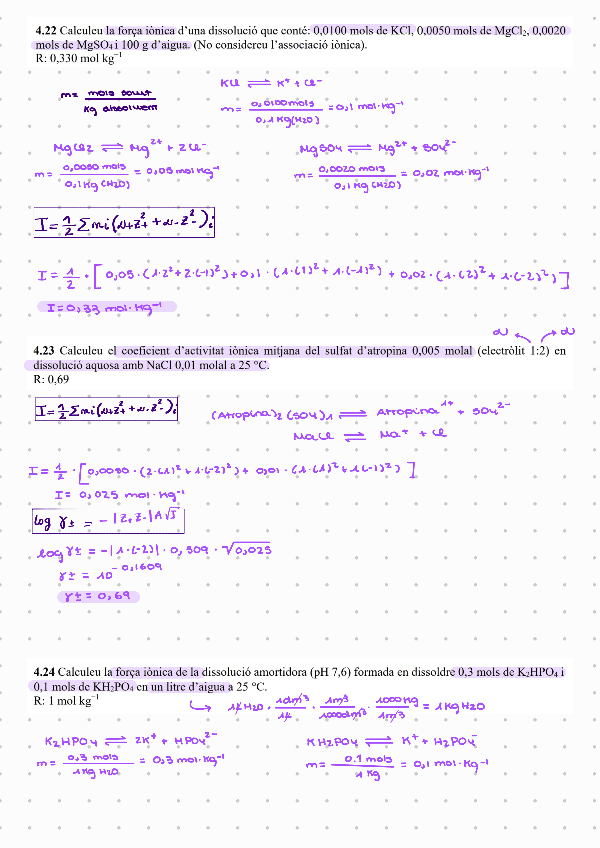 4.22 Calculeu la força iònica d’una dissolució que conté: 0,0100 mols de KCl, 0,0050 mols de MgCl₂, 0,0020
mols de MgSO₄ i 100 g d’aigua. (No considereu l’associació iònica).
R: 0,330 mol kg⁻¹
KCl ⇌ K⁺ + Cl⁻
m = mols solut / Kg dissolvent
m = 0,0100 mols / 0,1 Kg (H2O) = 0,1 mol·Kg⁻¹
MgCl2 ⇌ Mg²⁺ + 2Cl⁻
MgSO4 ⇌ Mg²⁺ + SO4²⁻
m = 0,0050 mols / 0,1 Kg (H2O) = 0,05 mol Kg⁻¹
m = 0,0020 mols / 0,1 Kg (H2O) = 0,02 mol·Kg⁻¹
I = 1/2 Σ mi (ν+z²+ + ν-z²-)i
I = 1/2 · [0,05 · (1·2² + 2·(-1)²) + 0,1 · (1·(1)² + 1·(-1)²) + 0,02 · (1·(2)² + 1·(-2)²)]
I = 0,33 mol·Kg⁻¹
ν ν
4.23 Calculeu el coeficient d’activitat iònica mitjana del sulfat d’atropina 0,005 molal (electròlit 1:2) en
dissolució aquosa amb NaCl 0,01 molal a 25 °C.
R: 0,69
I = 1/2 Σ mi (ν+z²+ + ν-z²-)i
(Atropina)2 (SO4)1 ⇌ Atropina¹⁺ + SO4²⁻
NaCl ⇌ Na⁺ + Cl
I = 1/2 · [0,0050 · (2·(1)² + 1·(-2)²) + 0,01 · (1·(1)² + 1(-1)²)]
I = 0,025 mol·Kg⁻¹
log γ± = -|z+z-|A√I
log γ± = -|1·(-2)| · 0,509 · √0,025
γ± = 10^-0,1609
γ± = 0,69
4.24 Calculeu la força iònica de la dissolució amortidora (pH 7,6) formada en dissoldre 0,3 mols de K₂HPO₄ i
0,1 mols de KH₂PO₄ en un litre d’aigua a 25 °C.
R: 1 mol kg⁻¹
↳ 1L H2O · 1dm³/1L · 1m³/1000dm³ · 1000Kg/1m³ = 1Kg H2O
K2HPO4 ⇌ 2K⁺ + HPO4²⁻
KH2PO4 ⇌ K⁺ + H2PO4⁻
m = 0,3 mols / 1Kg H2O = 0,3 mol·Kg⁻¹
m = 0.1 mols / 1 Kg = 0,1 mol·Kg⁻¹